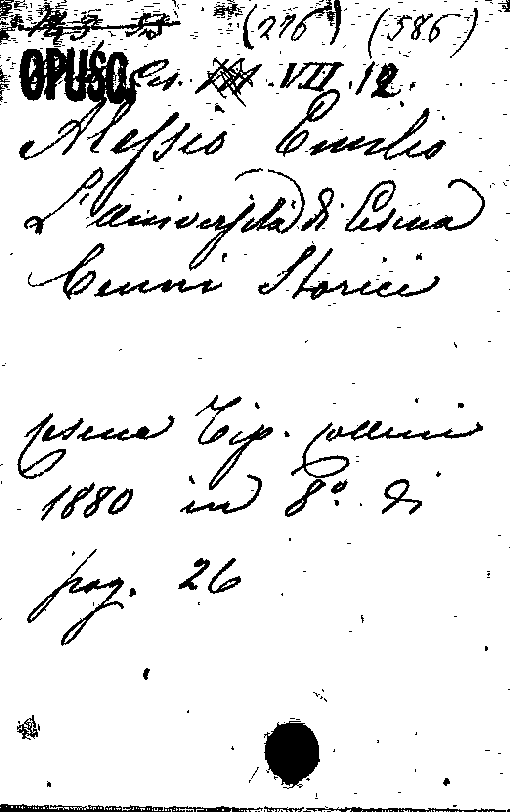 143 55 (276) (586)
OPUSC. Ces. VII. 12.
Alessio Emilio
L'Università di Cesena
Cenni Storici
Cesena Tip. Collini
1880 in 8.° di
pag. 26